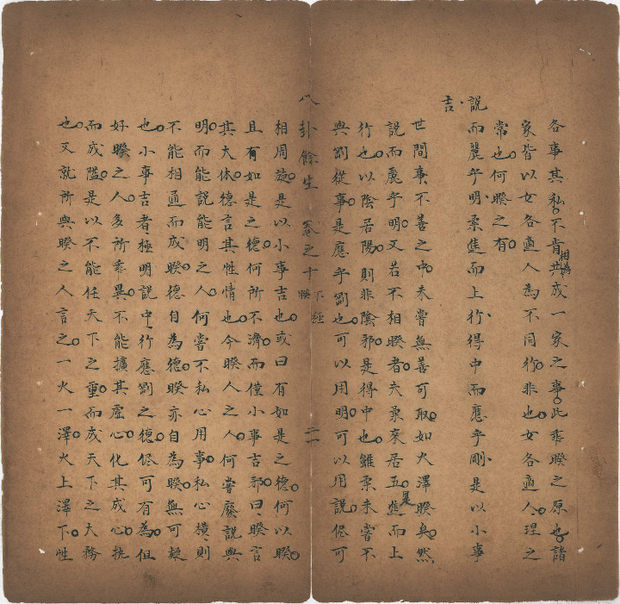 各事其私不肯相為共成一家之事此乖睽之原也諸
家皆以女各適人為不同行非也女各適人理之
常也何睽之有
說而麗乎明柔進而上行得中而應乎剛是以小事
吉
世間事不善之中未嘗無善可取如火澤睽矣然
說而麗乎明又若不相睽者六柔居五是進而上
行也以陰居陽則非陰邪是得中也雖柔未嘗不
與劉從事是應乎劉也可以用明可以用說侭可
八卦餘生 卷之十 下經 睽 二一
相周旋是以小事吉也或曰有如是之德何以睽
且有如是之德何所不濟而僅小事吉耶曰睽言
其大体德言其性情也今睽人之人何嘗麗說與
明而能說能明之人何嘗不私心用事私心橫則
不能相通而成睽德自為德睽亦自為睽無可疑
也小事吉者極明說中行應劉之德侭可有為但
好睽之人多所乖異不能擴其虛心化其成心执
而成隘是以不能任天下之重而成天下之大務
也又就所與睽之人言之一火一澤火上澤下性